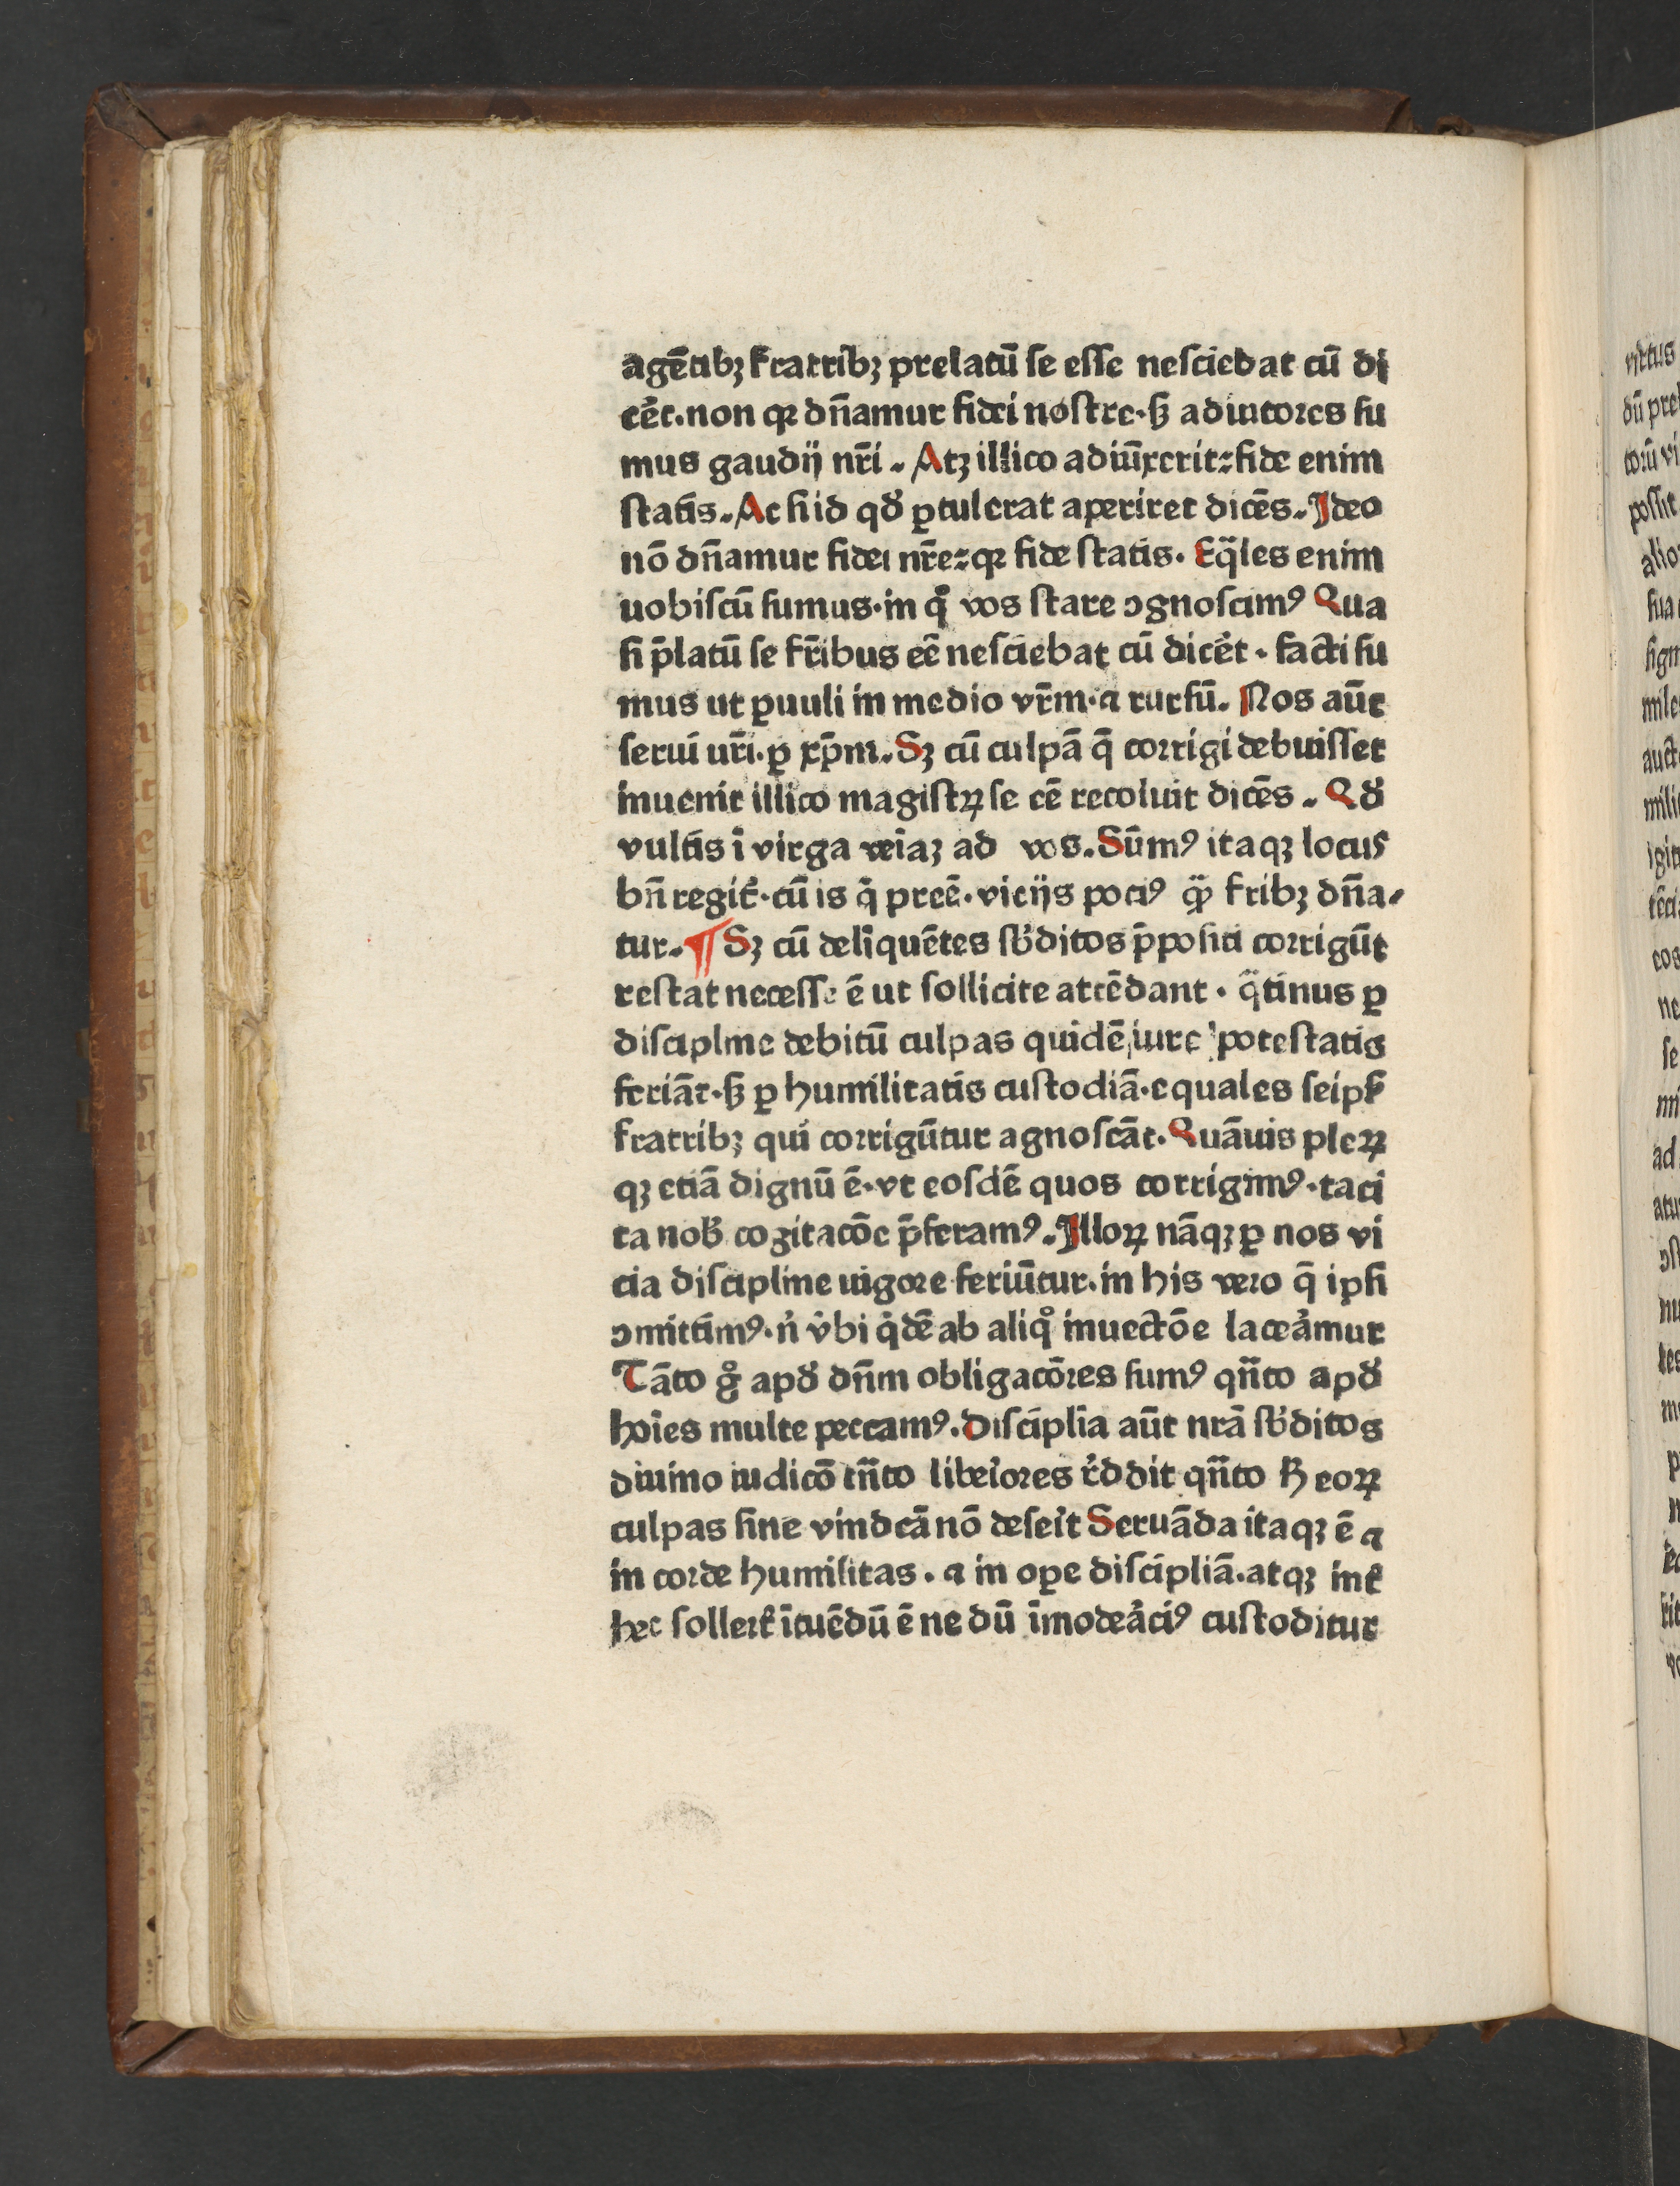 agētibꝫ fratribꝫ prelatū ſe eſſe neſciebat cū di
cēt·non qꝛ dn̄amur fidei noſtre·ſꝫ adiutoꝛes ſu
mus gaudij nr̄i. Atꝫ illico adiūxerit:fide enim
ſtatis. Ac ſi id qđ ꝓtulerat aperiret dicēs. Ideo
nō dn̄amur fidei nr̄e:qꝛ fide ſtatis. Eq̄les enim
uobiſcū ſumus·in qͦ vos ſtare ↄgnoſcimꝰ Qua
ſi p̄latū ſe fr̄ibus eē neſciebat cū dicēt·facti ſu
mus ut ꝑuuli in medio vr̄m·⁊ rurſū. Nos aūt
ſerui ur̄i·ꝑ xp̄m. Sꝫ cū culpā q̄ coꝛrigi debuiſſet
inuenit illico magiſtꝝ ſe eē recoluit dicēs. Qđ
vultis ī virga veiaꝫ ad vos. Sūmꝰ itaqꝫ locus
bn̄ regit᷑·cū is qͥ preē·vicijs pociꝰ qͣ̄ fribꝫ dn̄a-
tur. ¶ Sꝫ cū deliquētes ſb̓ditos p̄poſiti coꝛrigūt
reſtat neceſſe ē ut ſollicite attēdant·qͣtinus ꝑ
diſciplīne debitū culpas quidē iure poteſtatis
feriāt·ſꝫ ꝑ humilitatis cuſtodiā·equales ſeipſ̄
fratribꝫ qui coꝛrigūtur agnoſcāt. Quāuis pleꝝ
qꝫ etiā dignū ē·vt eoſdē quos corrigimꝰ·taci
ta nob̄ cogitacōe p̄feramꝰ. Illoꝝ nāqꝫ ꝑ nos vi
cia diſcipline uigoꝛe feriūtur·in his veꝛo q̄ ipſi
ↄmittimꝰ·n̓ v̓bi qͥdē ab aliqͦ inuectōe laceẚmur
Tāto gͦ apđ dn̄m obligacōꝛes ſumꝰ qn̄to apđ
hoīes multe peccamꝰ. Diſciplīa aūt nrā ſb̓ditos
diuino iudicō tn̄to libeꝛ̓oꝛes r̓ddit qn̄to ꝶ eoꝝ
culpas ſine vindcā nō deſeīt Seruāda itaqꝫ ē ⁊
in coꝛde humilitas. ⁊ in oꝑe diſcipliā·atqꝫ int̄
hec ſolleꝛt̄ ītuēdū ē ne dū īmodeẚciꝰ cuſtoditur